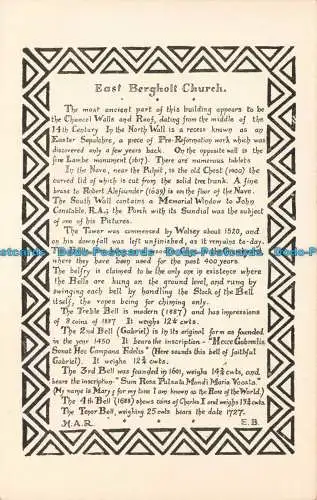 East Bergholt Church.
The most ancient part of this building appears to be
the Chancel Walls and Roof, dating from the middle of the
14th Century In the North Wall is a recess known as an
Easter Sepulchre, a piece of Pre-Reformation work which was
discovered only a few years back. On the opposite wall is the
fine Lambe monument (1617). There are numerous tablets
In the Nave, near the Pulpit, is the old Chest (1400) the
curved lid of which is cut from the solid tree trunk. A fine
brass to Robert Alefounder (1639) is on the floor of the Nave.
The South Wall contains a Memorial Window to John
Constable, R.A.; the Porch with its Sundial was the subject
of one of his Pictures.
The Tower was commenced by Wolsey about 1520, and
on his downfall was left unfinished, as it remains to-day.
where they have been used for the past 400 years.
The belfry is claimed to be the only one in existence where
the Bells are hung on the ground level, and rung by
swinging each bell by handling the Stock of the Bell
itself, the ropes being for chiming only.
The Treble Bell is modern (1887) and has impressions
of 8 coins of 1887 It weighs 12¼ cwts.
The 2nd Bell (Gabriel) is in its original form as founded
in the year 1450 It bears the inscription - "Hecce Gabrielis
Sonat Hec Campana Fidelis" (Here sounds this bell of faithful
Gabriel). It weighs 12¾ cwts.
The 3rd Bell was founded in 1601, weighs 14¾ cwts, and
bears the inscription - "Sum Rosa Pulsata Mundi Maria Vocata"
(My name is Mary; for my tone I am known as the Rose of the World.)
The 4th Bell (1688) shews coins of Charles I and weighs 19¾ cwts.
The Tenor Bell, weighing 25 cwts bears the date 1727.
M.A.R. E.B.